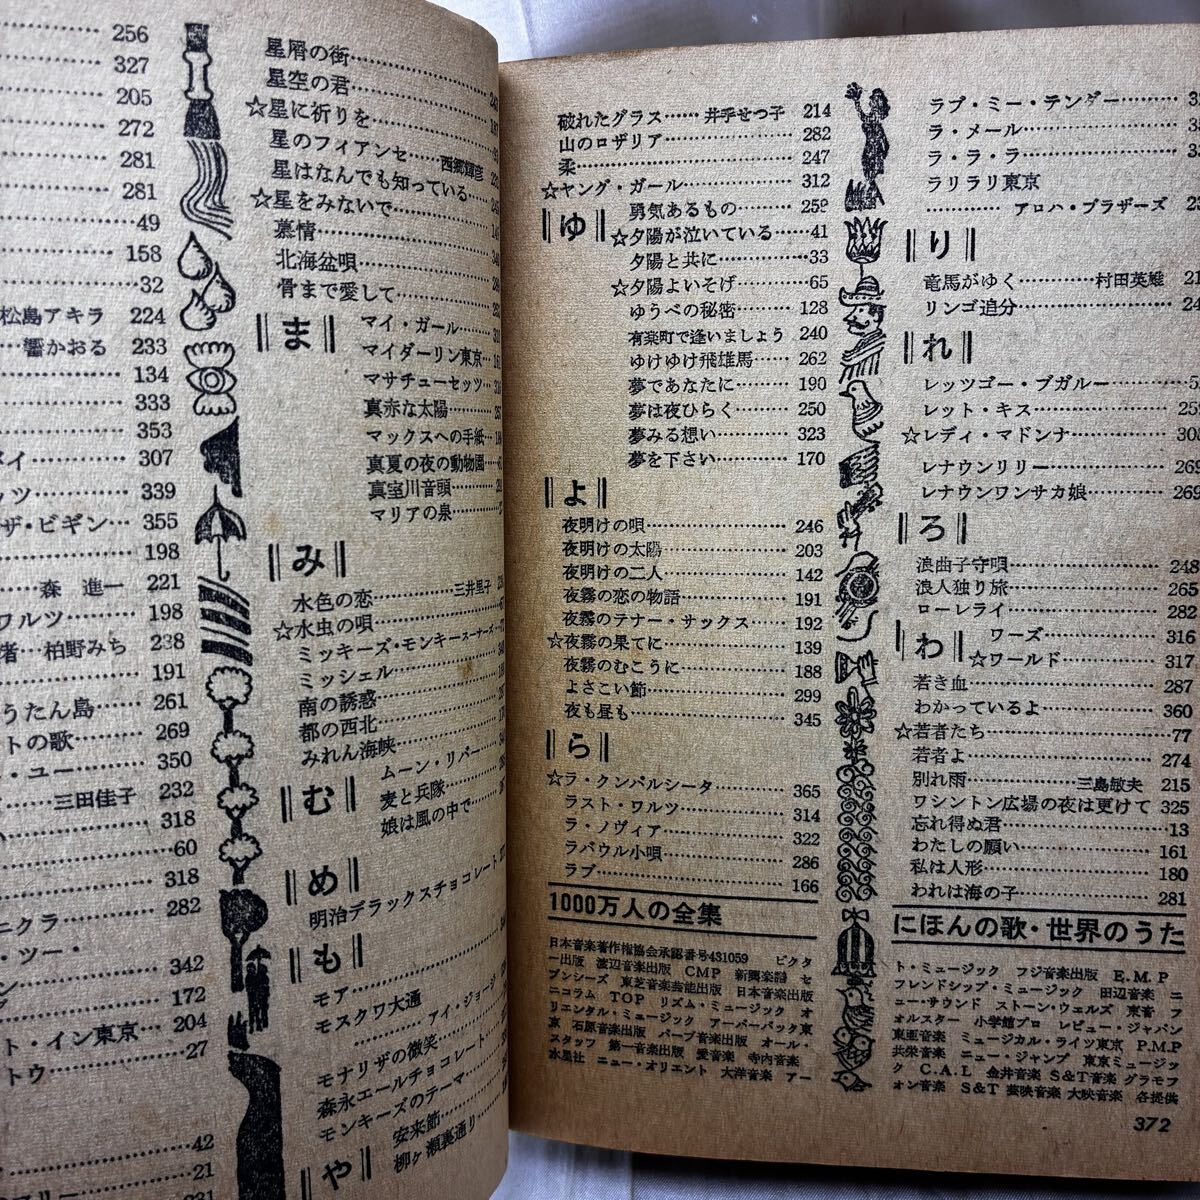 256
327
205
272
281
281
49
158
32
松島アキラ 224
…響かおる 233
134
333
353
307
ッツ 339
ザ・ビギン… 355
198
森 進一 221
ワルツ 198
者…柏野みち 238
191
うたん島 261
トの歌 269
・ユー 350
三田佳子 232
318
60
318
ニクラ 282
・ツー・
342
172
ト・イン東京… 204
トウ 27
42
21
231
星屑の街
星空の君
☆星に祈りを
星のフィアンセ…西郷輝彦
星はなんでも知っている
☆星をみないで
慕情
北海盆唄
骨まで愛して
ま
マイ・ガール
マイダーリン東京
マサチューセッツ
真赤な太陽
マックスへの手紙
真夏の夜の動物園
真室川音頭
マリアの泉
み
水色の恋 三井里子
☆水虫の唄
ミッキーズ・モンキー
ミッシェル
南の誘惑
都の西北
みれん海峡
む
ムーン・リバー
麦と兵隊
娘は風の中で
め
明治デラックスチョコレート
も
モア
モスクワ大通
アイ・ジョージ
モナリザの微笑
森永エールチョコレート
モンキーズのテーマ
や
安来節
柳ヶ瀬裏通り
破れたグラス……井手せつ子 214
山のロザリア 282
柔 247
☆ヤング・ガール 312
ゆ
勇気あるもの 259
☆夕陽が泣いている 41
夕陽と共に 33
☆夕陽よいそげ 65
ゆうべの秘密 128
有楽町で逢いましょう 240
ゆけゆけ飛雄馬 262
夢であなたに 190
夢は夜ひらく 250
夢みる想い 323
夢を下さい 170
よ
夜明けの唄 246
夜明けの太陽 203
夜明けの二人 142
夜霧の恋の物語 191
夜霧のテナー・サックス 192
☆夜霧の果てに 139
夜霧のむこうに 188
よさこい節 299
夜も昼も 345
ら
☆ラ・クンパルシータ 365
ラスト・ワルツ 314
ラ・ノヴィア 322
ラバウル小唄 286
ラブ 166
ラブ・ミー・テンダー
ラ・メール
ラ・ラ・ラ
ラリラリ東京
アロハ・ブラザーズ
り
竜馬がゆく 村田英雄
リンゴ追分
れ
レッツゴー・ブガルー
レット・キス
☆レディ・マドンナ
レナウンリリー 269
レナウンワンサカ娘 269
ろ
浪曲子守唄 248
浪人独り旅 265
ローレライ 282
わ
ワーズ 316
☆ワールド 317
若き血 287
わかっているよ 360
☆若者たち 77
若者よ 274
別れ雨 三島敏夫 215
ワシントン広場の夜は更けて 325
忘れ得ぬ君 13
わたしの願い 161
私は人形 180
われは海の子 281
1000万人の全集
にほんの歌・世界のうた
日本音楽著作権協会承認番号431059 ビクタ
ー出版 渡辺音楽出版 CMP 新興楽譜 セ
ブンシーズ 東芝音楽芸能出版 日本音楽出版
ニコラム TOP リズム・ミュージック オ
リエンタル・ミュージック アーパーパック東
京 石原音楽出版 パーブ音楽出版 オール・
スタッフ 第一音楽出版 愛音楽 寺内音楽
水星社 ニュー・オリエント 大洋音楽 アー
ト・ミュージック フジ音楽出版 E.M.P
フレンドシップ・ミュージック 田辺音楽 ニ
ュー・サウンド ストーン・ウェルズ 東音 フ
ォルスター 小学館プロ レビュー・ジャパン
東亜音楽 ミュージカル・ライツ東京 P.M.P
共栄音楽 ニュー・ジャンプ 東京ミュージッ
ク C.A.L 金井音楽 S&T音楽 グラモフ
ォン音楽 S&T 芸映音楽 大映音楽 各提供
372